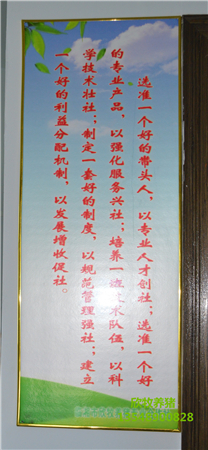 选准一个好的带头人，以专业人才创社；选准一个好
的专业产品，以强化服务兴社；培养一技术队伍，以科
学技术壮社；制定一套好的制度，以规范管理强社；建立
一个好的利益分配机制，以发展增收促社。
放牧养猪